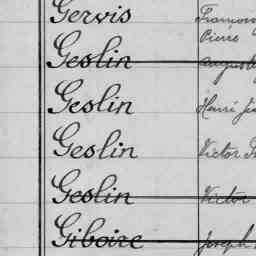 Gervis
Pierre
Geslin
Geslin Henri
Geslin Victor
Geslin Victor
Giboire Joseph